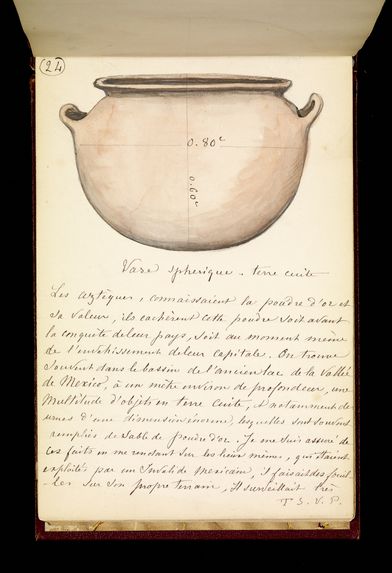 (24)
0.80c
0.60c
Vase spherique - terre cuite
Les aztèques, connaissaient la poudre d'or et
sa valeur, ils cachèrent cette poudre soit avant
la conquète de leur pays, soit au moment meme
de l'envahissement de leur capitale. On trouve
souvent dans le bassin de l'ancien lac de la Vallée
de Mexico, à un mètre environ de profondeur, une
Multitude d'objets en terre cuite, et notamment de
urnes d'une dimension énorme, lesquelles sont souvent
remplies de sable de poudre d'or. Je me suis assuré de
ces faits en me rendant sur les lieux mêmes, qui étaient
exploités par un Invalide Mexicain, il faisait des fouil-
les sur son propre terrain, Il surveillait très
T. S. V. P.